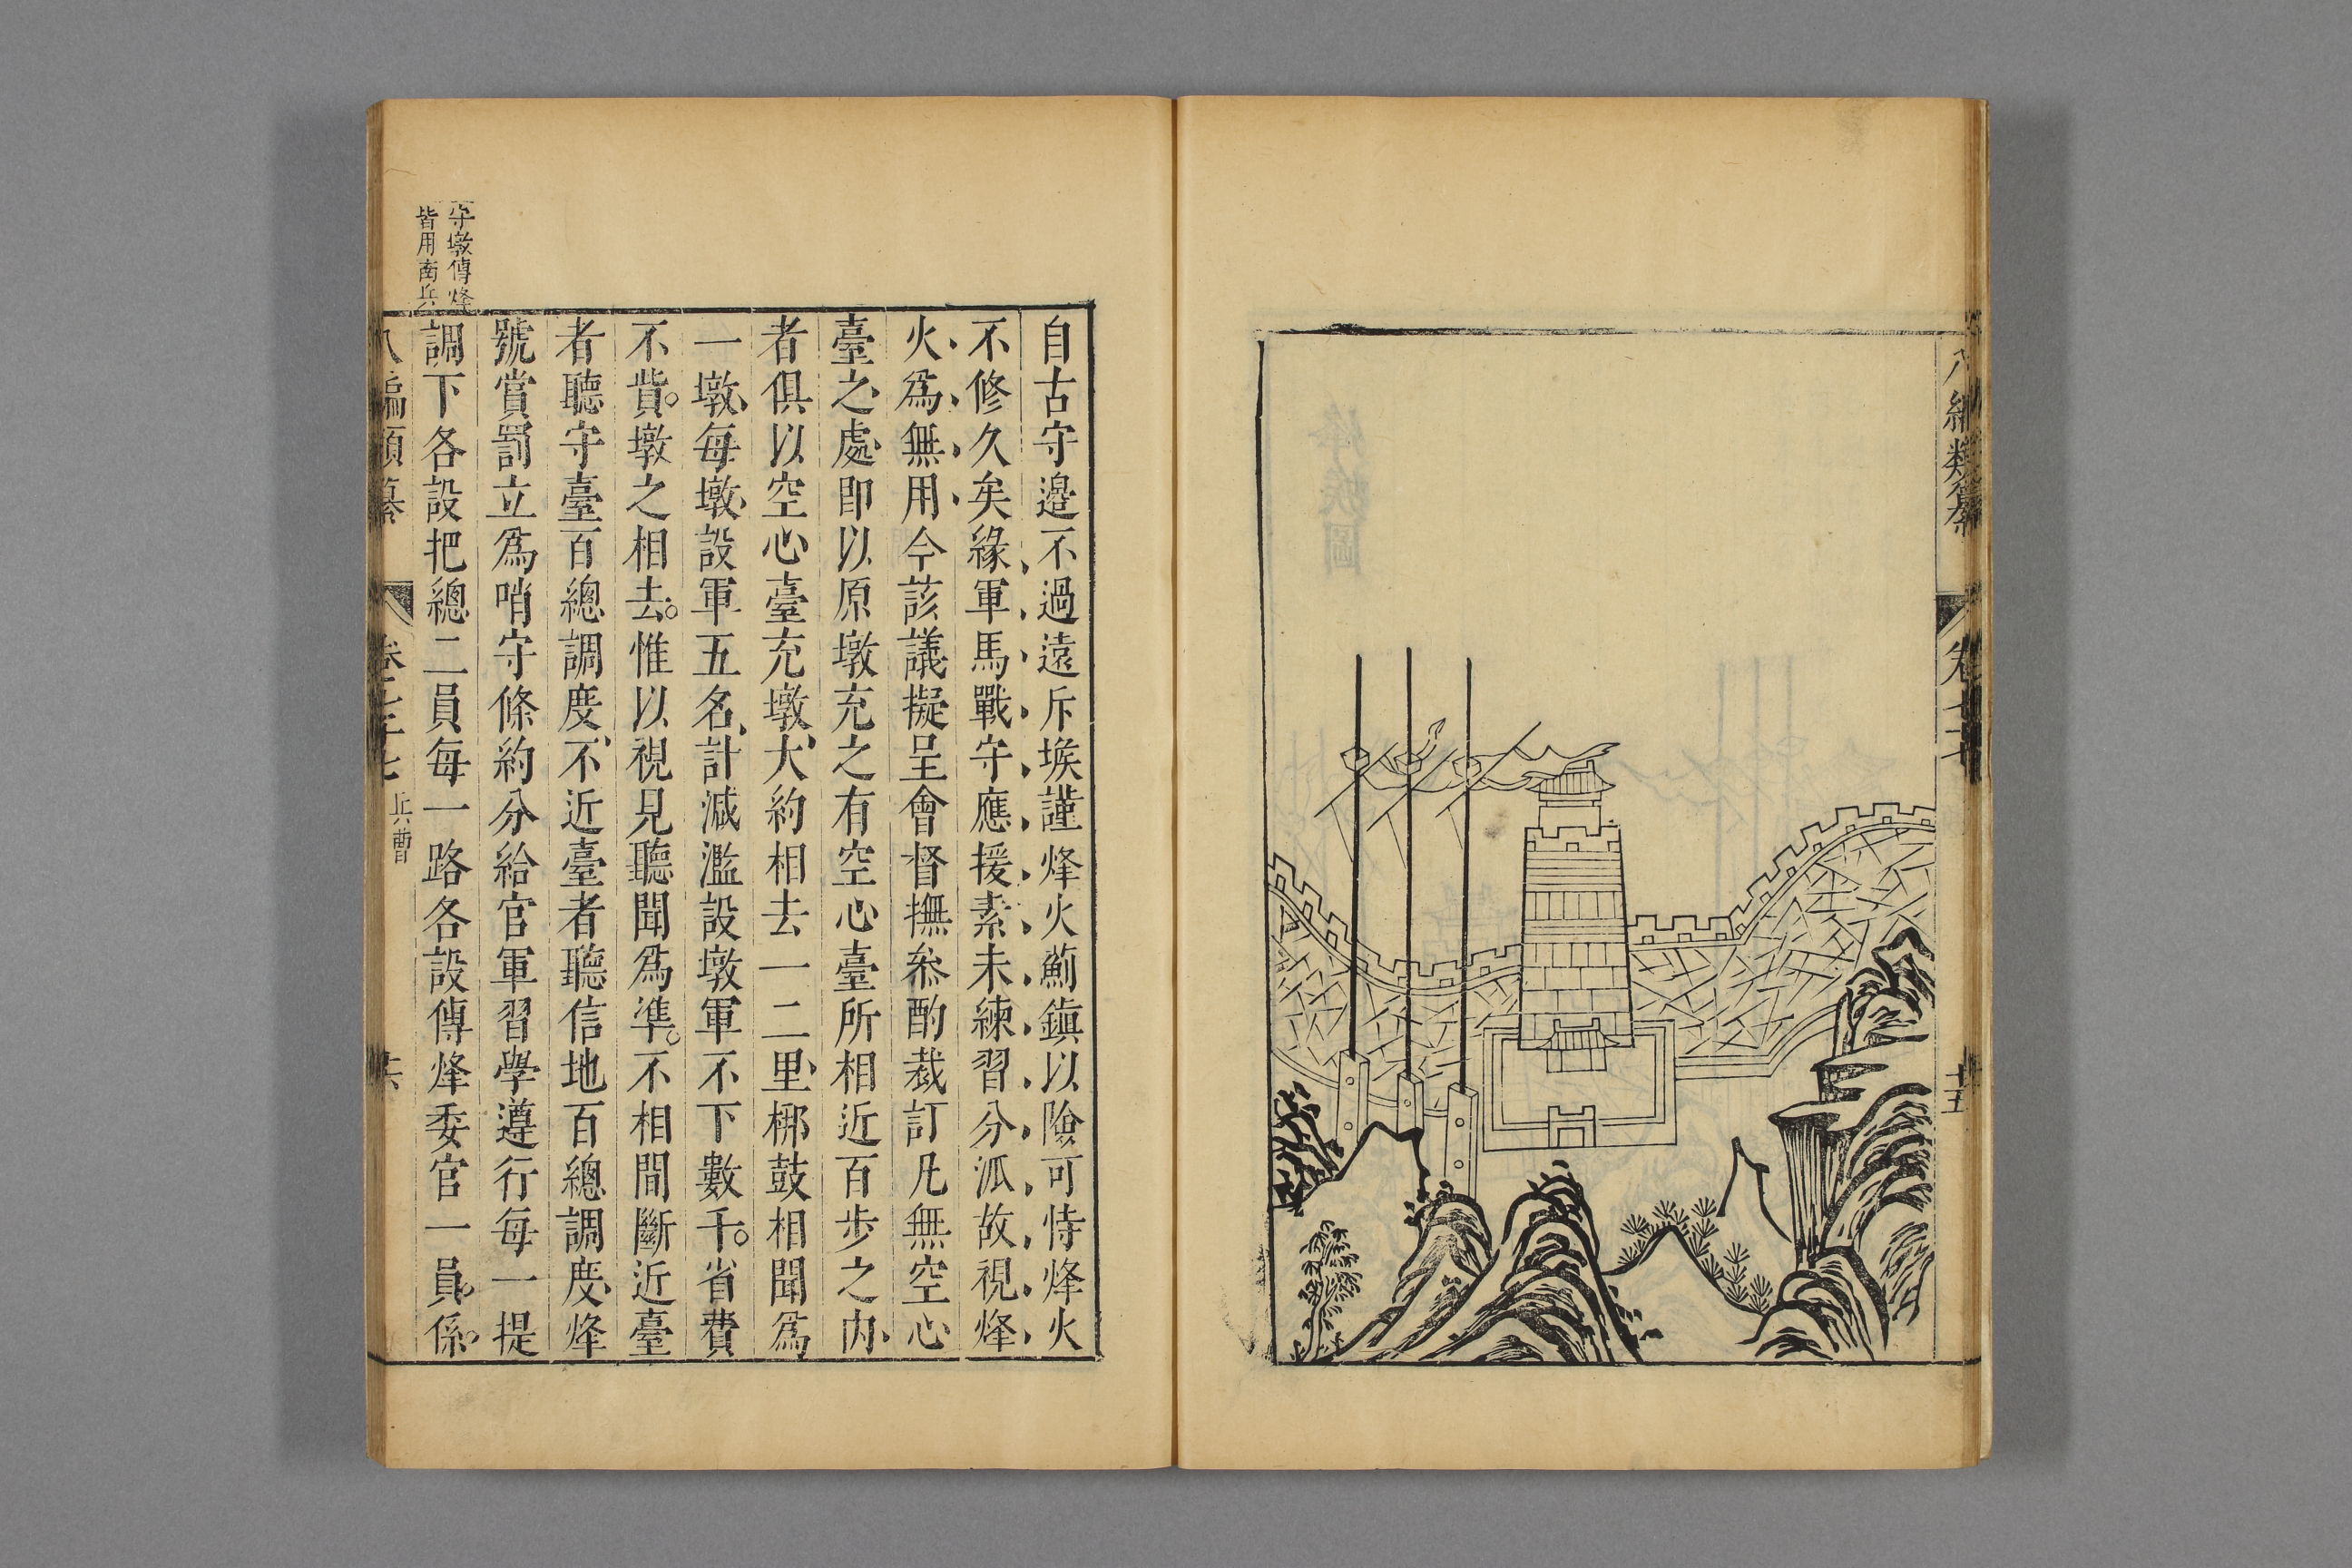 八編類纂
卷七十七
十五
自古守邊不過遠斥堠謹烽火薊鎭以險可恃烽火
不修久矣緣軍馬戰守應援素未練習分派故視烽
火爲無用今該議擬呈會督撫叅酌裁訂凡無空心
臺之處即以原墩充之有空心臺所相近百步之內
者俱以空心臺充墩大約相去一二里梆鼓相聞爲
一墩每墩設軍五名計減濫設墩軍不下數千省費
不貲墩之相去惟以視見聽聞爲準不相間斷近臺
者聽守臺百總調度不近臺者聽信地百總調度烽
號賞罰立爲哨守條約分給官軍習學遵行每一提
調下各設把總二員每一路各設傳烽委官一員係
守墩傳烽
皆用南兵
八編類纂
卷七十七
兵曹
共